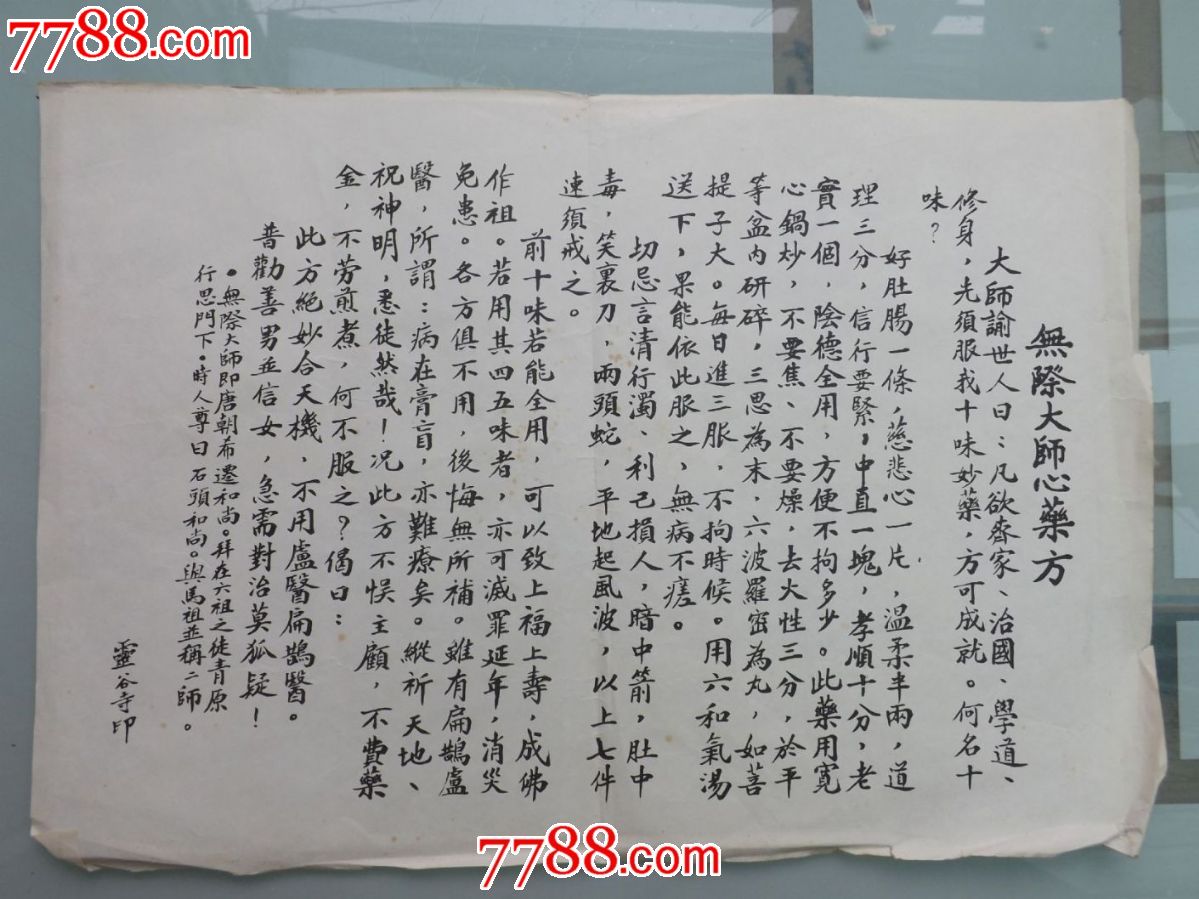 7788.com
無際大師心藥方
大師諭世人曰：凡欲齊家、治國、學道、
修身，先須服我十味妙藥，方可成就。何名十
味？
好肚腸一條，慈悲心一片，溫柔半兩，道
理三分，信行要緊，中直一塊，孝順十分，老
實一個，陰德全用，方便不拘多少。此藥用寬
心鍋炒，不要焦、不要燥，去火性三分，於平
等盆內研碎，三思為末，六波羅密為丸，如菩
提子大。每日進三服，不拘時候。用六和氣湯
送下，果能依此服之，無病不瘥。
切忌言清行濁、利己損人，暗中箭，肚中
毒，笑裏刀，兩頭蛇，平地起風波，以上七件
速須戒之。
前十味若能全用，可以致上福上壽，成佛
作祖。若用其四五味者，亦可滅罪延年，消災
免患。各方俱不用，後悔無所補。雖有扁鵲盧
醫，所謂：病在膏肓，亦難療矣。縱祈天地、
祝神明，悉徒然哉！况此方不悮主顧，不費藥
金，不劳煎煮，何不服之？偈曰：
此方絕妙合天機，不用盧醫扁鵲醫。
普勸善男並信女，急需對治莫狐疑！
。無際大師即唐朝希遷和尚。拜在六祖之徒青原
行思門下。時人尊曰石頭和尚。與馬祖並稱二師。
靈谷寺印
7788.com